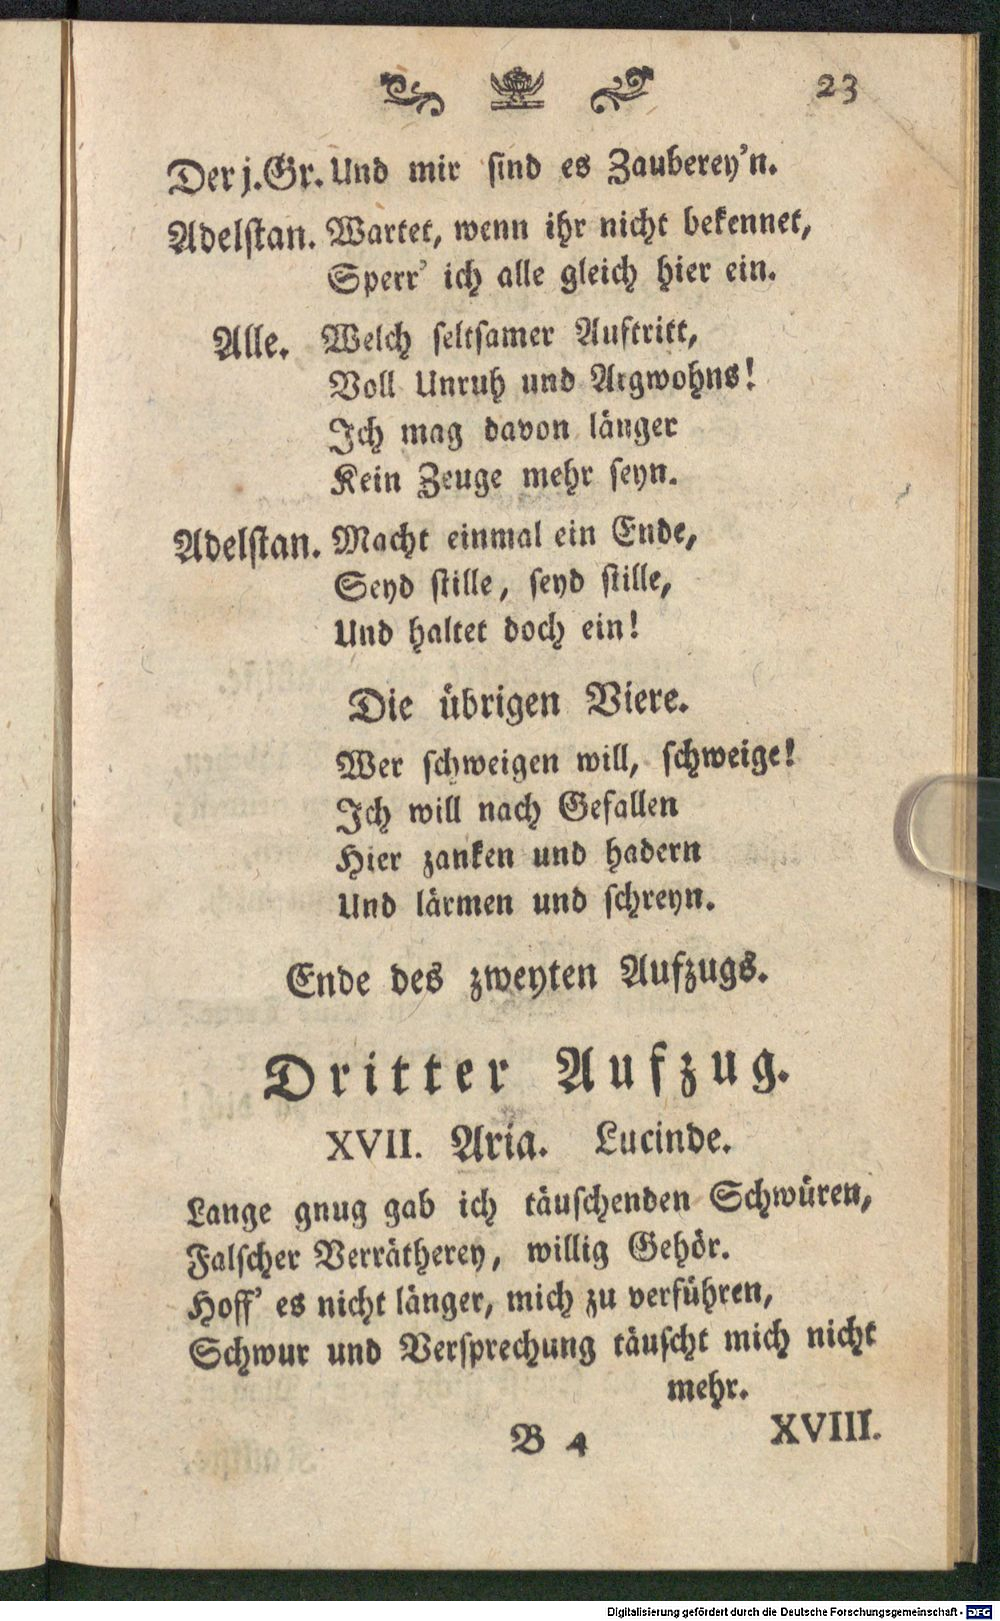 23
Der j. Gr. Und mir sind es Zauberey'n.
Adelstan. Wartet, wenn ihr nicht bekennet,
Sperr' ich alle gleich hier ein.
Alle. Welch seltsamer Auftritt,
Voll Unruh und Argwohns!
Ich mag davon länger
Kein Zeuge mehr seyn.
Adelstan. Macht einmal ein Ende,
Seyd stille, seyd stille,
Und haltet doch ein!
Die übrigen Viere.
Wer schweigen will, schweige!
Ich will nach Gefallen
Hier zanken und hadern
Und lärmen und schreyn.
Ende des zweyten Aufzugs.
Dritter Aufzug.
XVII. Aria. Lucinde.
Lange gnug gab ich täuschenden Schwüren,
Falscher Verrätherey, willig Gehör.
Hoff' es nicht länger, mich zu verführen,
Schwur und Versprechung täuscht mich nicht
mehr.
B 4 XVIII.
Digitalisierung gefördert durch die Deutsche Forschungsgemeinschaft - DFG